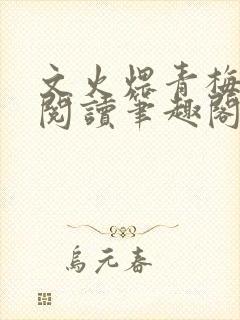 文火煨青梅
閱讀筆趣閣
烏元春